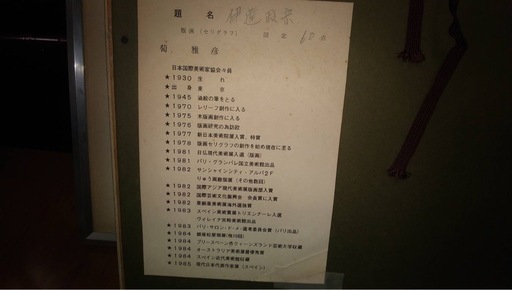 題 名 伊達政宗
版画 (セリグラフ) 限定 60 点
菊 雅彦
日本国際美術家協会々員
★1930 生 れ
★出 身 東 京
★1945 油絵の筆をとる
★1970 レリーフ創作に入る
★1975 木版画創作に入る
★1976 版画研究の為訪欧
★1977 新日本美術院展入賞、特賞
★1978 版画セリグラフの創作を始め現在に至る
★1981 日仏現代美術展入選 (版画)
★1981 パリ・グランパレ国立美術館出品
★1982 サンシャインシティ・アルパ2F
りゅう画廊個展 (その他数回)
★1982 国際アジア現代美術展版画部入賞
★1982 国際芸術文化振興会 会長賞に入賞
★1982
★1983 スペイン美術賞展トリエンナーレ入選
ヴィレイナ宮殿美術館出品
★1983 パリ・サロン・ド・メ・選考委員会賞 (パリ出品)
★1984 銀座松屋個展
★1984 ブリスベーン市クィーンズランド芸術大学収蔵
★1984 オーストラリア美術展最優秀賞
★1984 スペイン近代美術館収蔵
★1985 現代日本代表作家展 (スペイン)